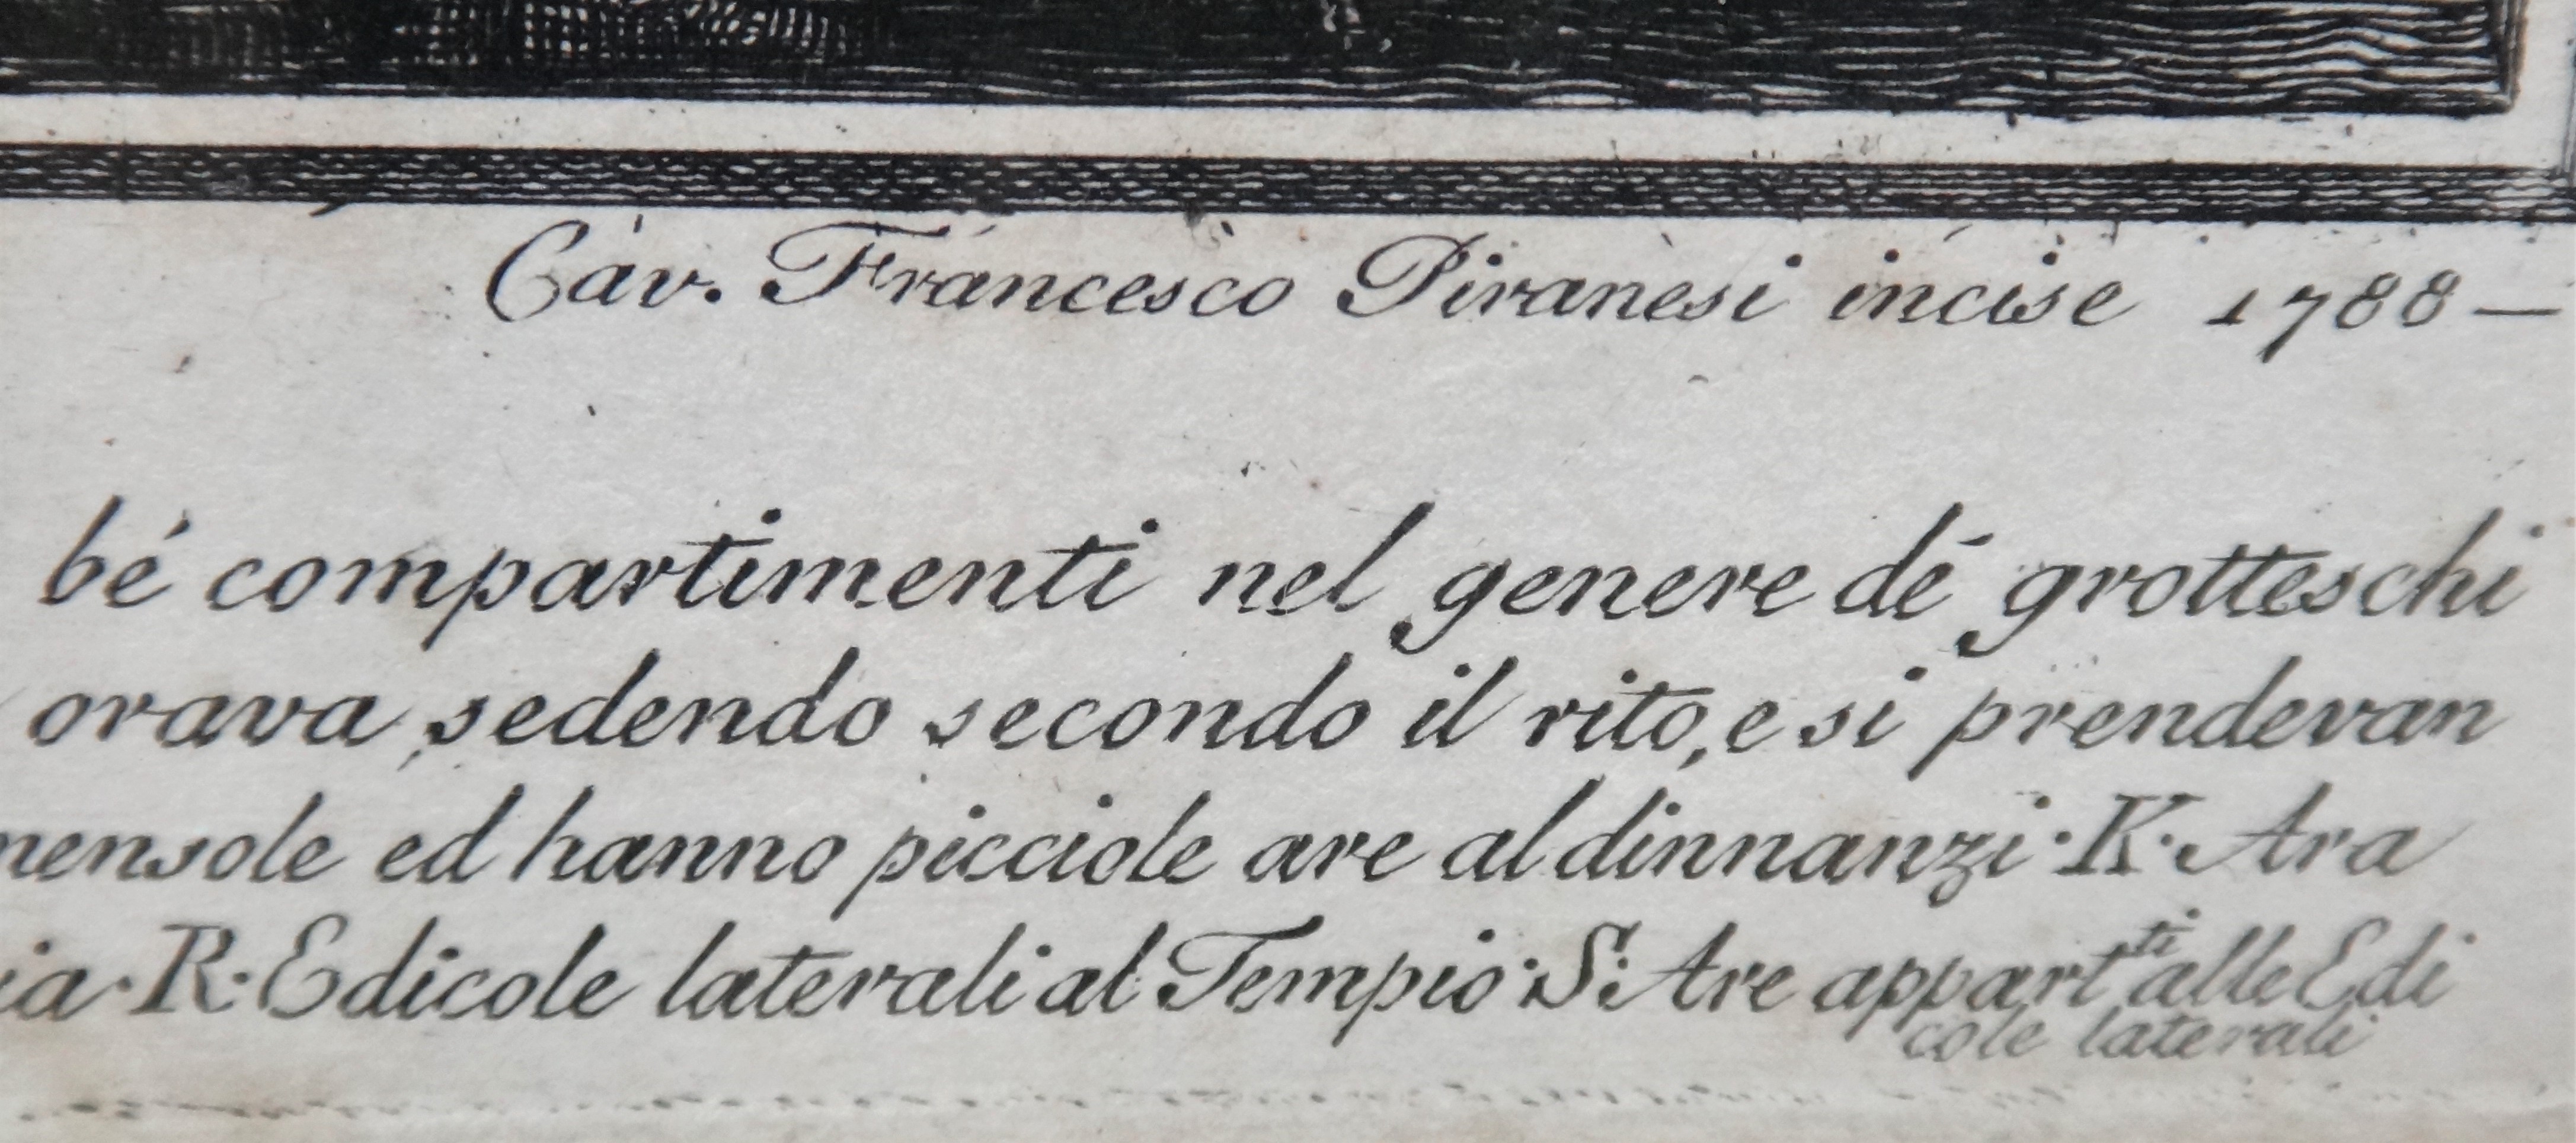 Cav. Francesco Piranesi incise 1788 —
bé compartimenti nel genere dé grotteschi
orava, sedendo secondo il rito, e si prendevan
mensole ed hanno picciole are al dinnanzi · K · Ara
ia · R · Edicole laterali al Tempio · S · Are appart.ti alle Edi
cole laterali